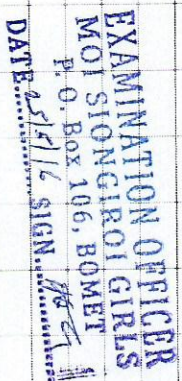 EXAMINATION OFFICER
MOI SIONGIROI GIRLS
P. O. Box 106, BOMET
DATE SIGN